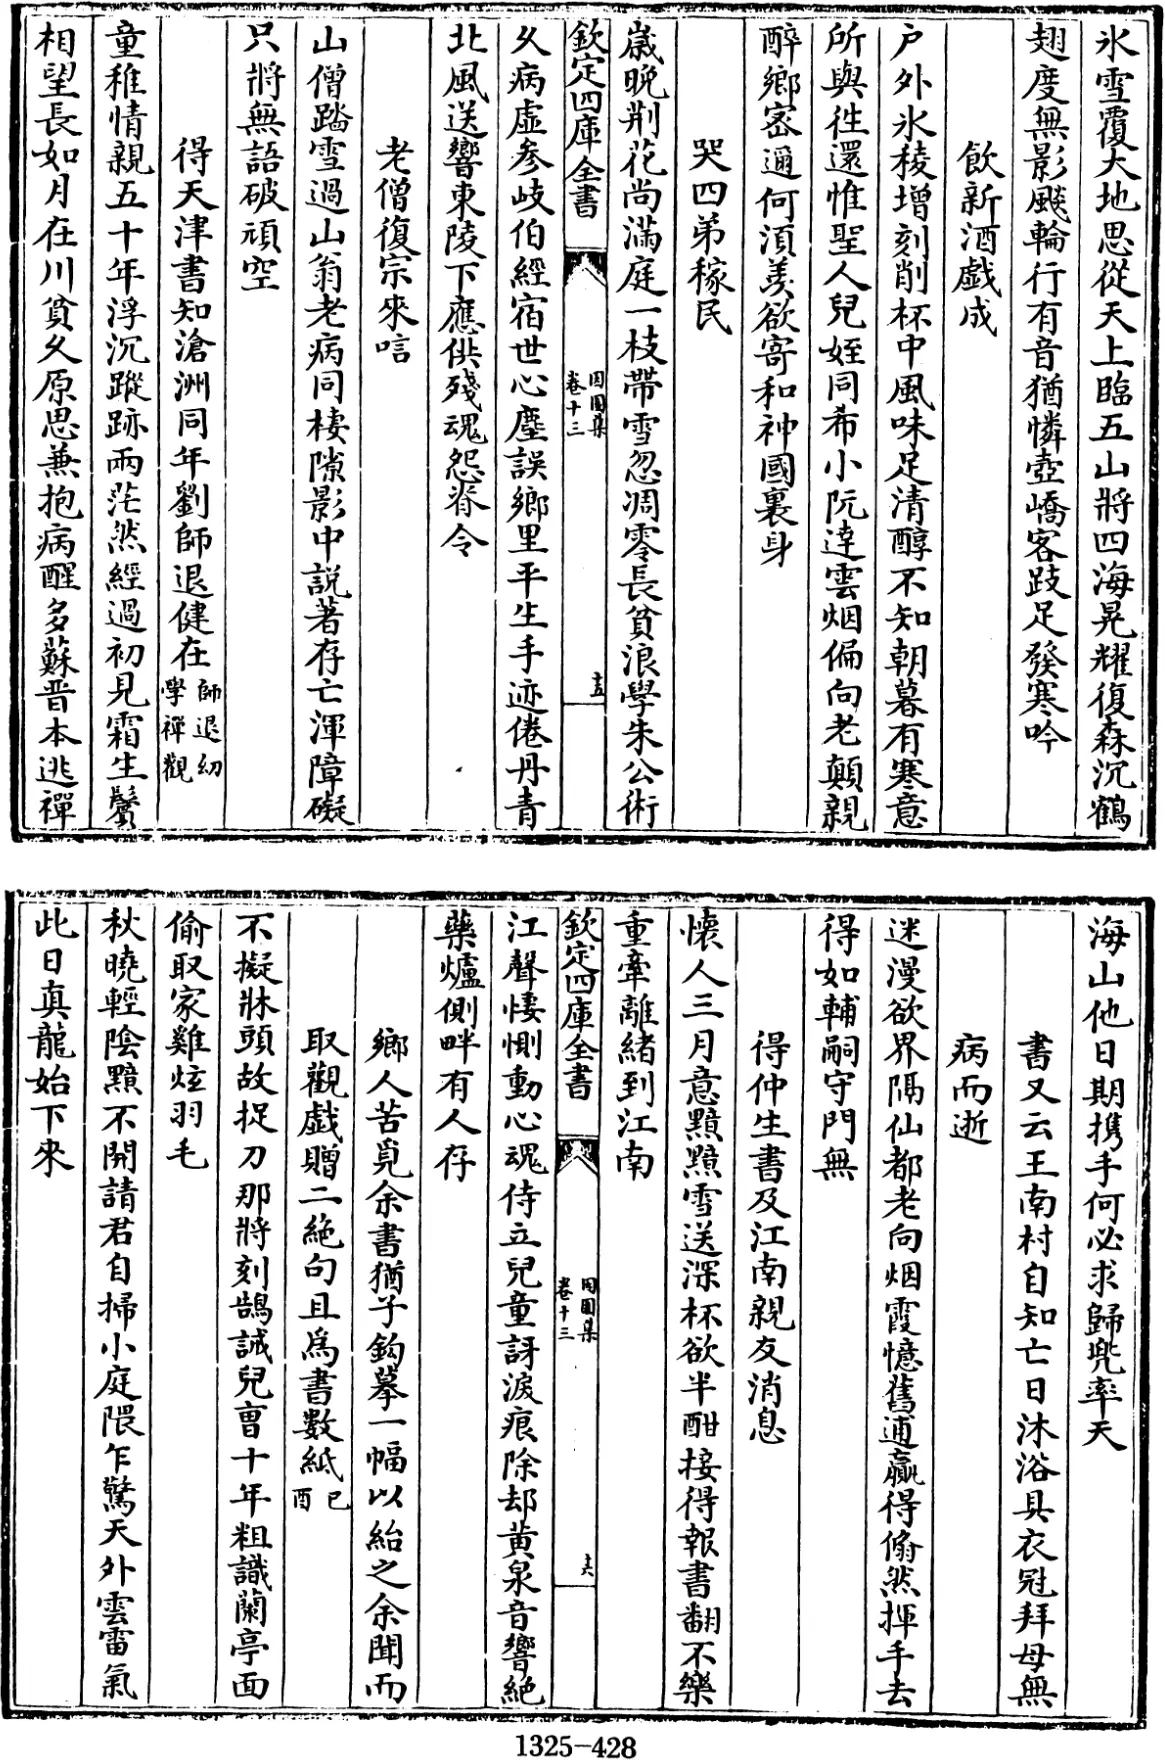 氷雪覆大地思從天上臨五山將四海晃耀復森沉鶴
翅度無影飈輪行有音猶憐壺嶠客跂足發寒吟
飲新酒戲成
戸外氷稜增刻削杯中風味足清醇不知朝暮有寒意
所與徃還惟聖人兒姪同希小阮達雲烟偏向老顛親
醉鄉宻邇何湏羡欲寄和神國裏身
哭四弟稼民
嵗晩荆花尚滿庭一枝帶雪忽凋零長貧浪學朱公術
欽定四庫全書
因園集
卷十三
十五
乆病虛參岐伯經宿世心塵誤鄉里平生手迹倦丹青
北風送響東陵下應供殘魂怨脊令
老僧復宗來唁
山僧踏雪過山翁老病同棲隙影中説著存亡渾障礙
只將無語破頑空
得天津書知滄洲同年劉師退健在師退幼學禪觀
童稚情親五十年浮沉蹤跡兩茫然經過初見霜生鬢
相望長如月在川貧乆原思兼抱病醒多蘇晋本逃禪
海山他日期携手何必求歸兠率天
書又云王南村自知亡日沐浴具衣冠拜母無
病而逝
迷漫欲界隔仙都老向烟霞憶舊逋贏得翛然揮手去
得如輔嗣守門無
得仲生書及江南親友消息
懷人三月意黯黯雪送深杯欲半酣接得報書翻不樂
重牽離緒到江南
欽定四庫全書
因園集
卷十三
十六
江聲悽惻動心魂侍立兒童訝淚痕除却黄泉音響絶
藥爐側畔有人存
鄉人苦覓余書猶子鈎摹一幅以紿之余聞而
取觀戲贈二絶句且爲書數紙己酉
不擬牀頭故捉刀那將刻鵠誡兒曹十年粗識蘭亭面
偷取家雞炫羽毛
秋曉輕陰黯不開請君自掃小庭隈乍驚天外雲雷氣
此日真龍始下來
1325-428